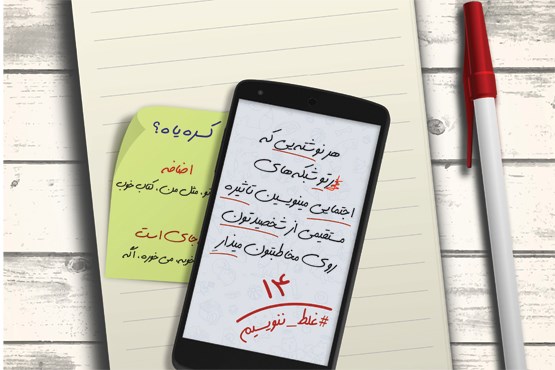 کسره یا ه؟
اضافه
مثل من، کتاب خوب
جای است
خوبه، می خوره، اگه
هر نوشته‌یی که
تو شبکه های
اجتمایی مینویسین تاثیره
مستقیمی از شخصیدتون
روی مخاطبتون میذار
۱۴
#غلط_ننویسیم